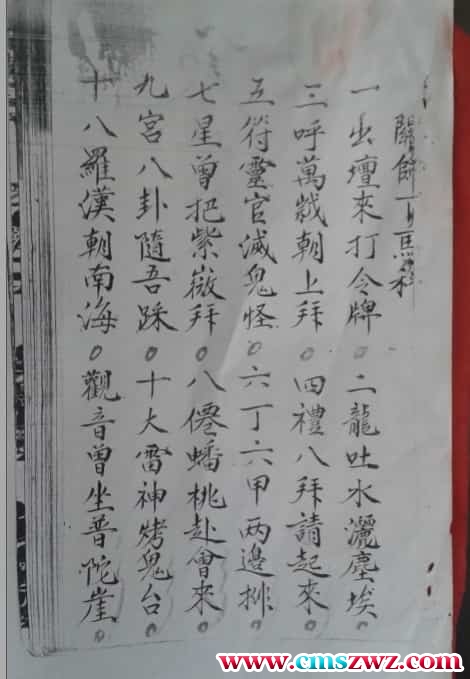 關師下馬科
一出壇來打令牌。二龍吐水灑塵埃
三呼萬歲朝上拜。四禮八拜請起來。
五符靈官滅鬼怪。六丁六甲两邉排
七星曾把紫微拜。八僊蟠桃赴會來。
九宮八卦隨吾踩。十大雷神烤鬼台。
十八羅漢朝南海。觀音曾坐普陀崖。
www.cmszwz.com